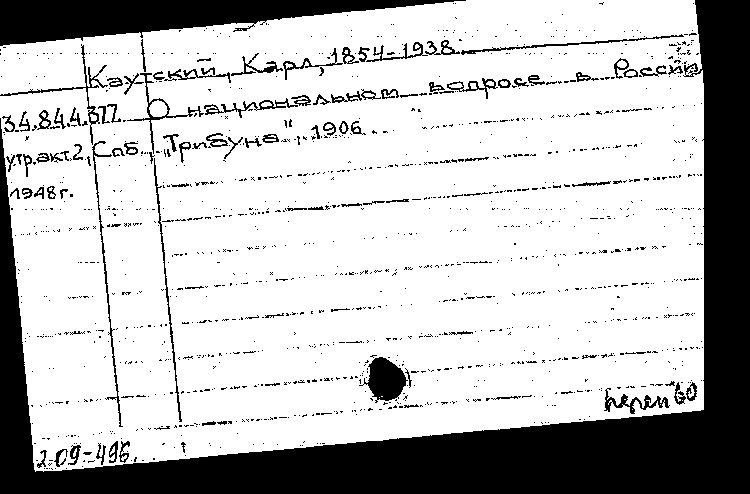 Каутский, Карл, 1854-1938.
34.84.4.377. О национальном вопросе в России
утр.акт.2, Спб., „Трибуна", 1906.
1948г.
переп 60
2.09-496.